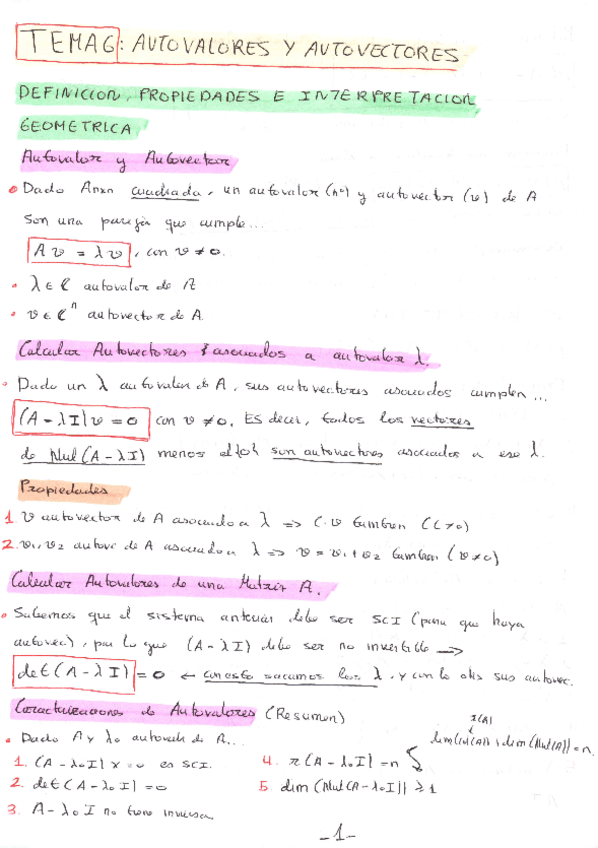 TEMA6: AUTOVALORES Y AUTOVECTORES
DEFINICION, PROPIEDADES E INTERPRETACION
GEOMETRICA
Autovalor y Autovector
• Dado Anxn cuadrada, un autovalor (nº) y autovector (v) de A
son una pareja que cumple...
Av = λv, con v ≠ 0.
• λ ∈ ℂ autovalor de A
• v ∈ ℂⁿ autovector de A.
Calcular Autovectores asociados a autovalor λ.
• Dado un λ autovalor de A, sus autovectores asociados cumplen...
(A - λI)v = 0 con v ≠ 0. Es decir, todos los vectores
de Nul(A - λI) menos el {0} son autovectores asociados a ese λ.
Propiedades
1. v autovector de A asociado a λ => C·v tambien (C ≠ 0)
2. v1, v2 autove de A asociado a λ => v = v1 + v2 tambien (v ≠ 0)
Calcular Autovalores de una Matriz A.
• Sabemos que el sistema anterior debe ser SCI (para que haya
autovec), por lo que (A - λI) debe ser no invertible →
det(A - λI) = 0 ← con esto sacamos los λ, y con lo otro sus autovec.
Caracterizaciones de Autovalores (Resumen)
r(A)
dim(Col(A)) + dim(Nul(A)) = n.
• Dado A y λ0 autovalor de A...
1. (A - λ0I)x = 0 es SCI.
2. det(A - λ0I) = 0
3. A - λ0I no tiene inversa
4. r(A - λ0I) = n
5. dim(Nul(A - λ0I)) ≥ 1
-1-